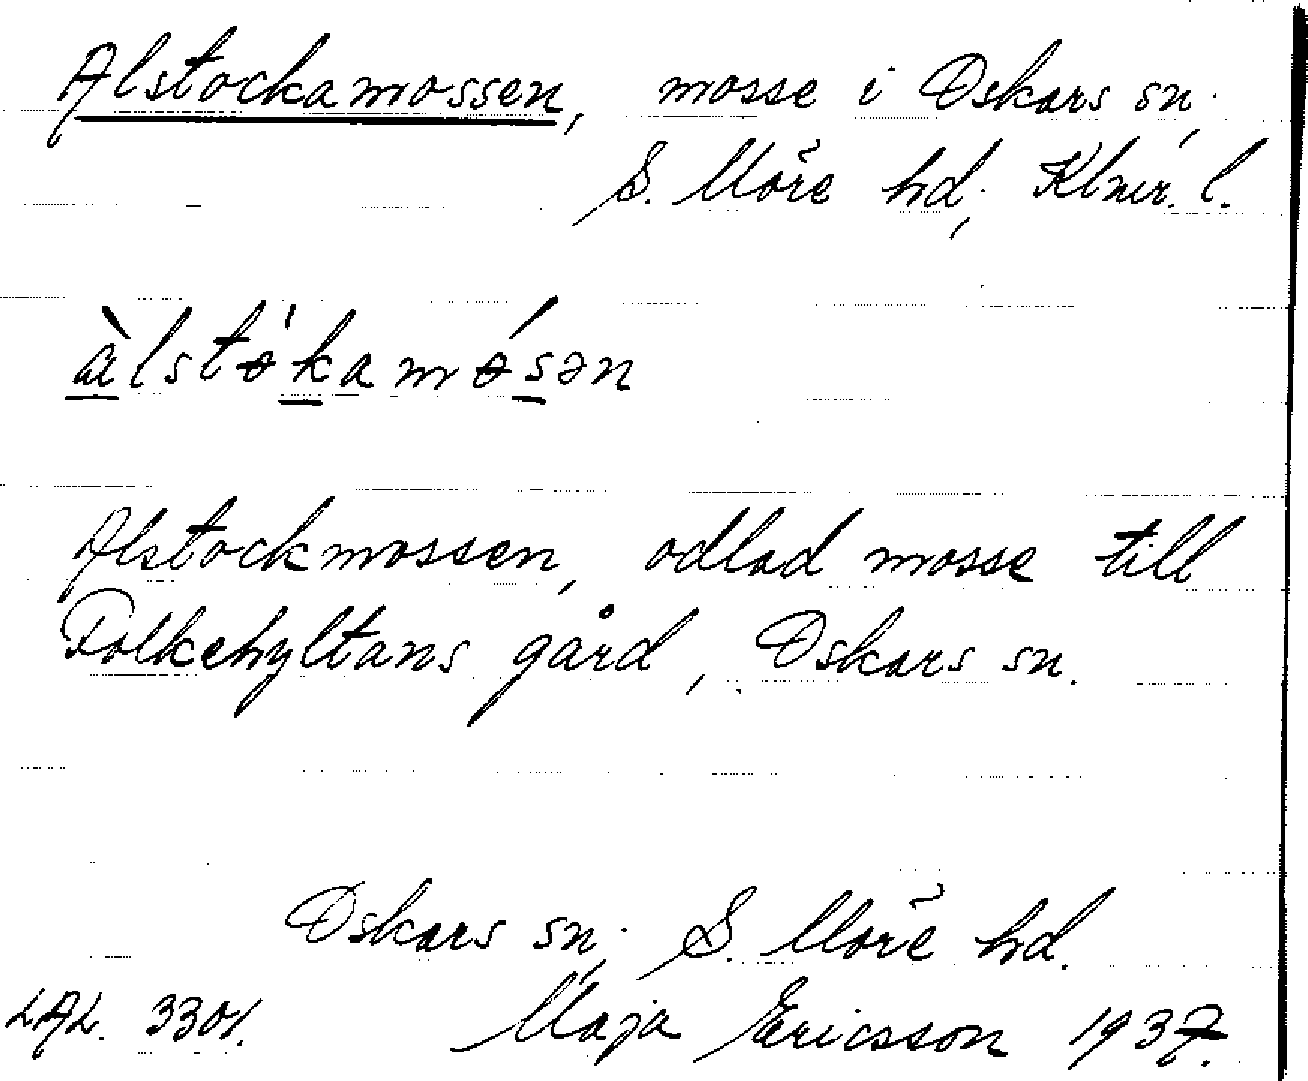 Alstockamossen, mosse i Oskars sn;
S. Möre hd; Klmr. l.
àlstɵ̍kamɵ́sən
Alstockmossen, odlad mosse till
Folkehyltans gård, Oskars sn.
Oskars sn; S. Möre hd.
LAL. 3301. Maja Ericsson 1937.